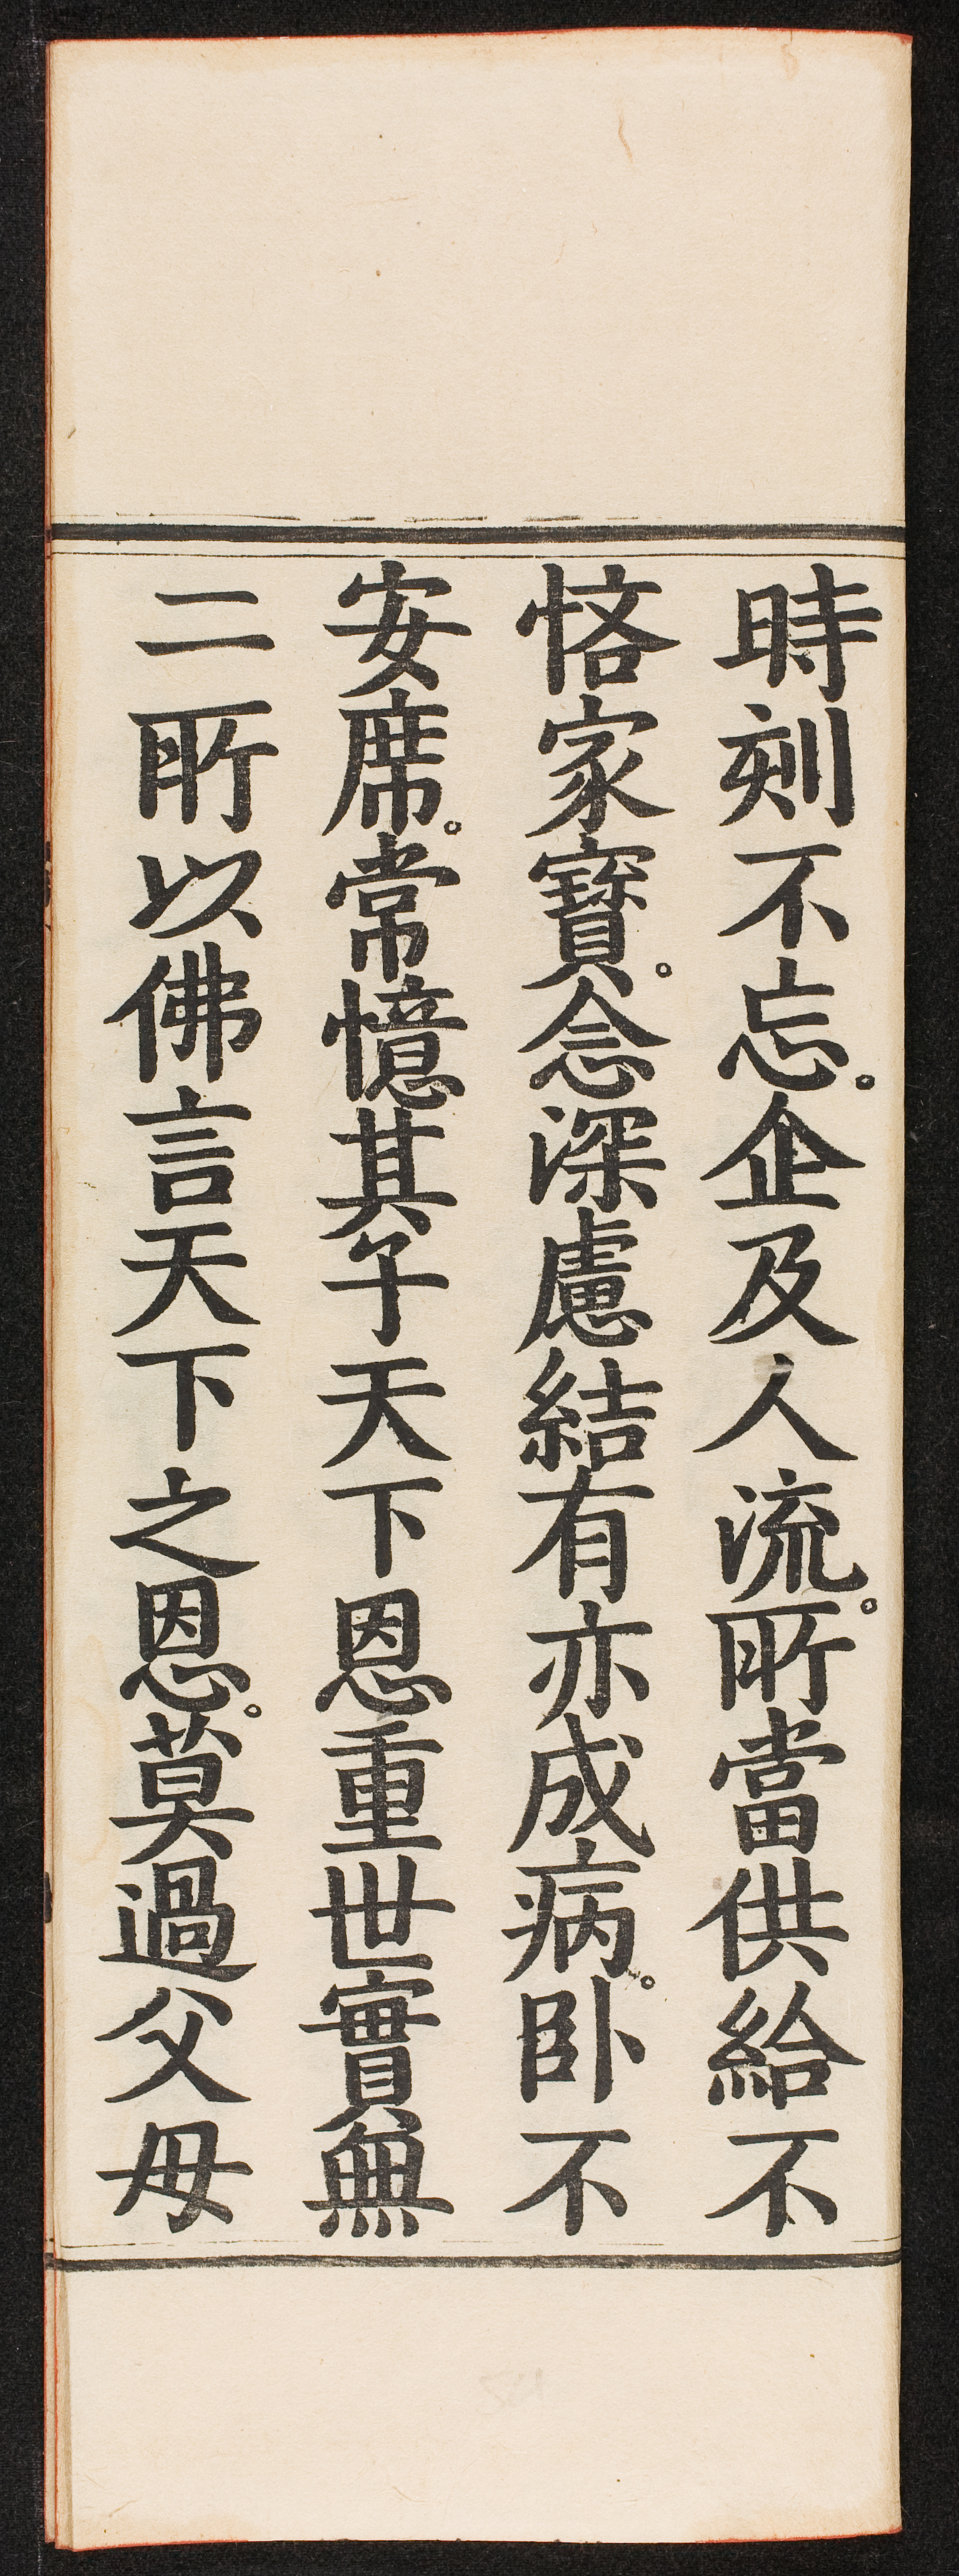 時刻不忘。企及人流。所當供給不
悋家寶。念深慮結有亦成病。卧不
安席。常憶其子天下恩重世實無
二所以佛言天下之恩。莫過父母